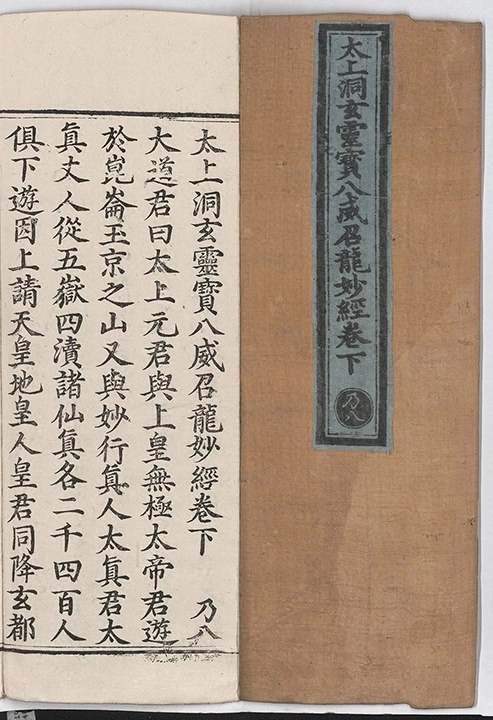 太上洞玄靈寶八威召龍妙經卷下
乃八
太上洞玄靈寶八威召龍妙經卷下 乃八
大道君曰太上元君與上皇無極太帝君遊
於崑崙玉京之山又與妙行真人太真君太
真丈人從五嶽四瀆諸仙真各二千四百人
俱下遊因上請天皇地皇人皇君同降玄都